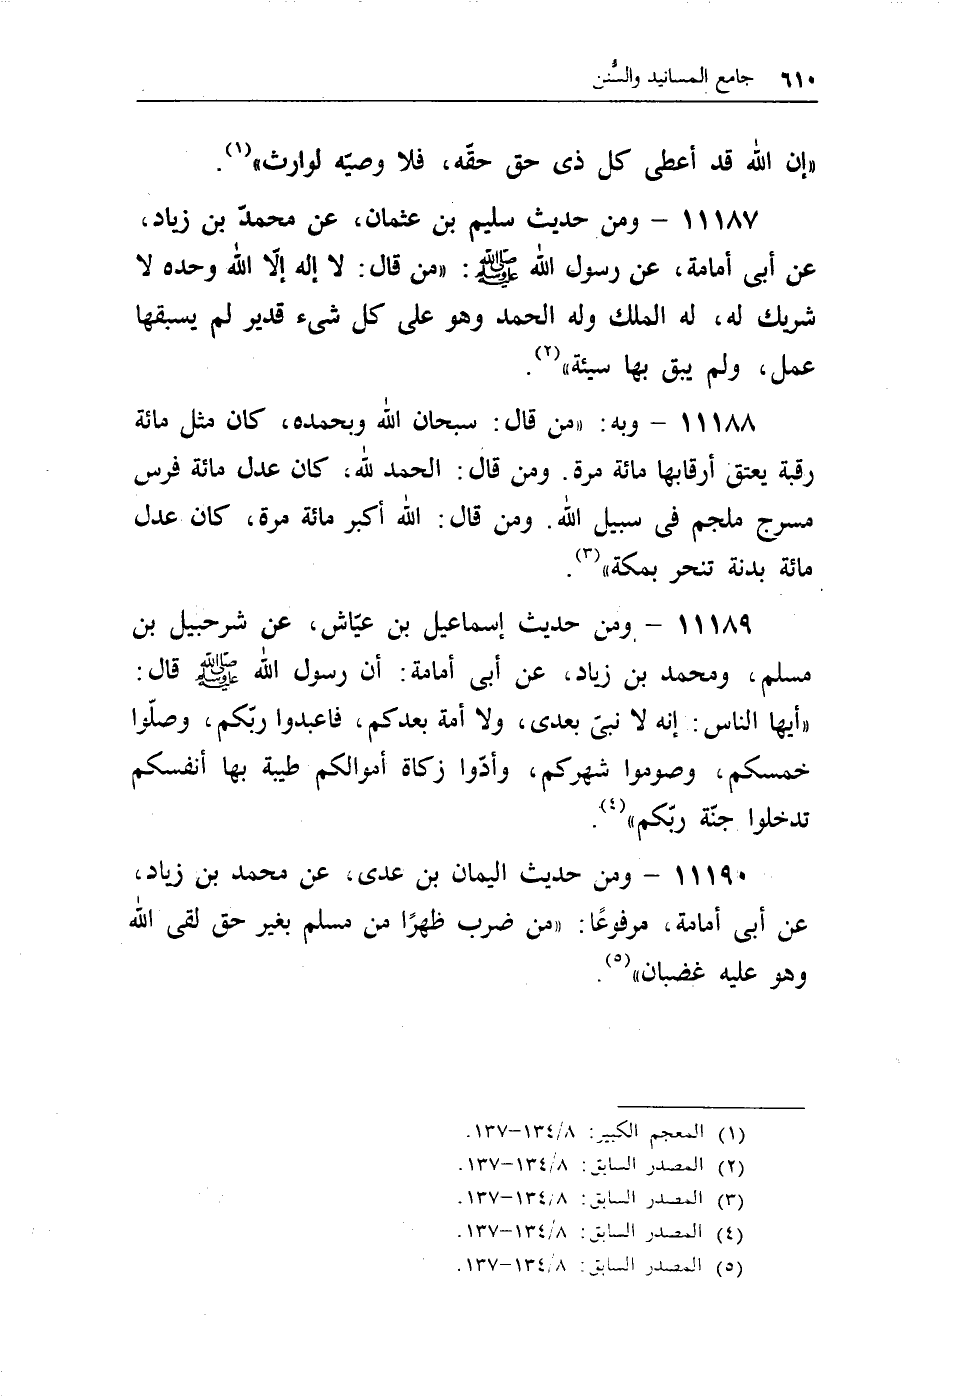 ٦١٠ جامع المسانيد والسُّنن
«إن الله قد أعطى كل ذى حق حقّه، فلا وصيّه لوارث»(١).
١١١٨٧ – ومن حديث سليم بن عثمان، عن محمدّ بن زياد،
عن أبى أمامة، عن رسول الله ﷺ: «من قال: لا إله إلّا الله وحده لا
شريك له، له الملك وله الحمد وهو على كل شىء قدير لم يسبقها
عمل، ولم يبق بها سيئة»(٢).
١١١٨٨ – وبه: «من قال: سبحان الله وبحمده، كان مثل مائة
رقبة يعتق أرقابها مائة مرة. ومن قال: الحمد لله، كان عدل مائة فرس
مسرج ملجم فى سبيل الله. ومن قال: الله أكبر مائة مرة، كان عدل
مائة بدنة تنحر بمكة»(٣).
١١١٨٩ – ومن حديث إسماعيل بن عيّاش، عن شرحبيل بن
مسلم، ومحمد بن زياد، عن أبى أمامة: أن رسول الله ﷺ قال:
«أيها الناس: إنه لا نبىّ بعدى، ولا أمة بعدكم، فاعبدوا ربّكم، وصلّوا
خمسكم، وصوموا شهركم، وأدّوا زكاة أموالكم طيبة بها أنفسكم
تدخلوا جنّة ربّكم»(٤).
١١١٩٠ – ومن حديث اليمان بن عدى، عن محمد بن زياد،
عن أبى أمامة، مرفوعًا: «من ضرب ظهرًا من مسلم بغير حق لقى الله
وهو عليه غضبان»(٥).
(١) المعجم الكبير: ٨/١٣٤–١٣٧.
(٢) المصدر السابق: ٨/١٣٤–١٣٧.
(٣) المصدر السابق: ٨/١٣٤–١٣٧.
(٤) المصدر السابق: ٨/١٣٤–١٣٧.
(٥) المصدر السابق: ٨/١٣٤–١٣٧.